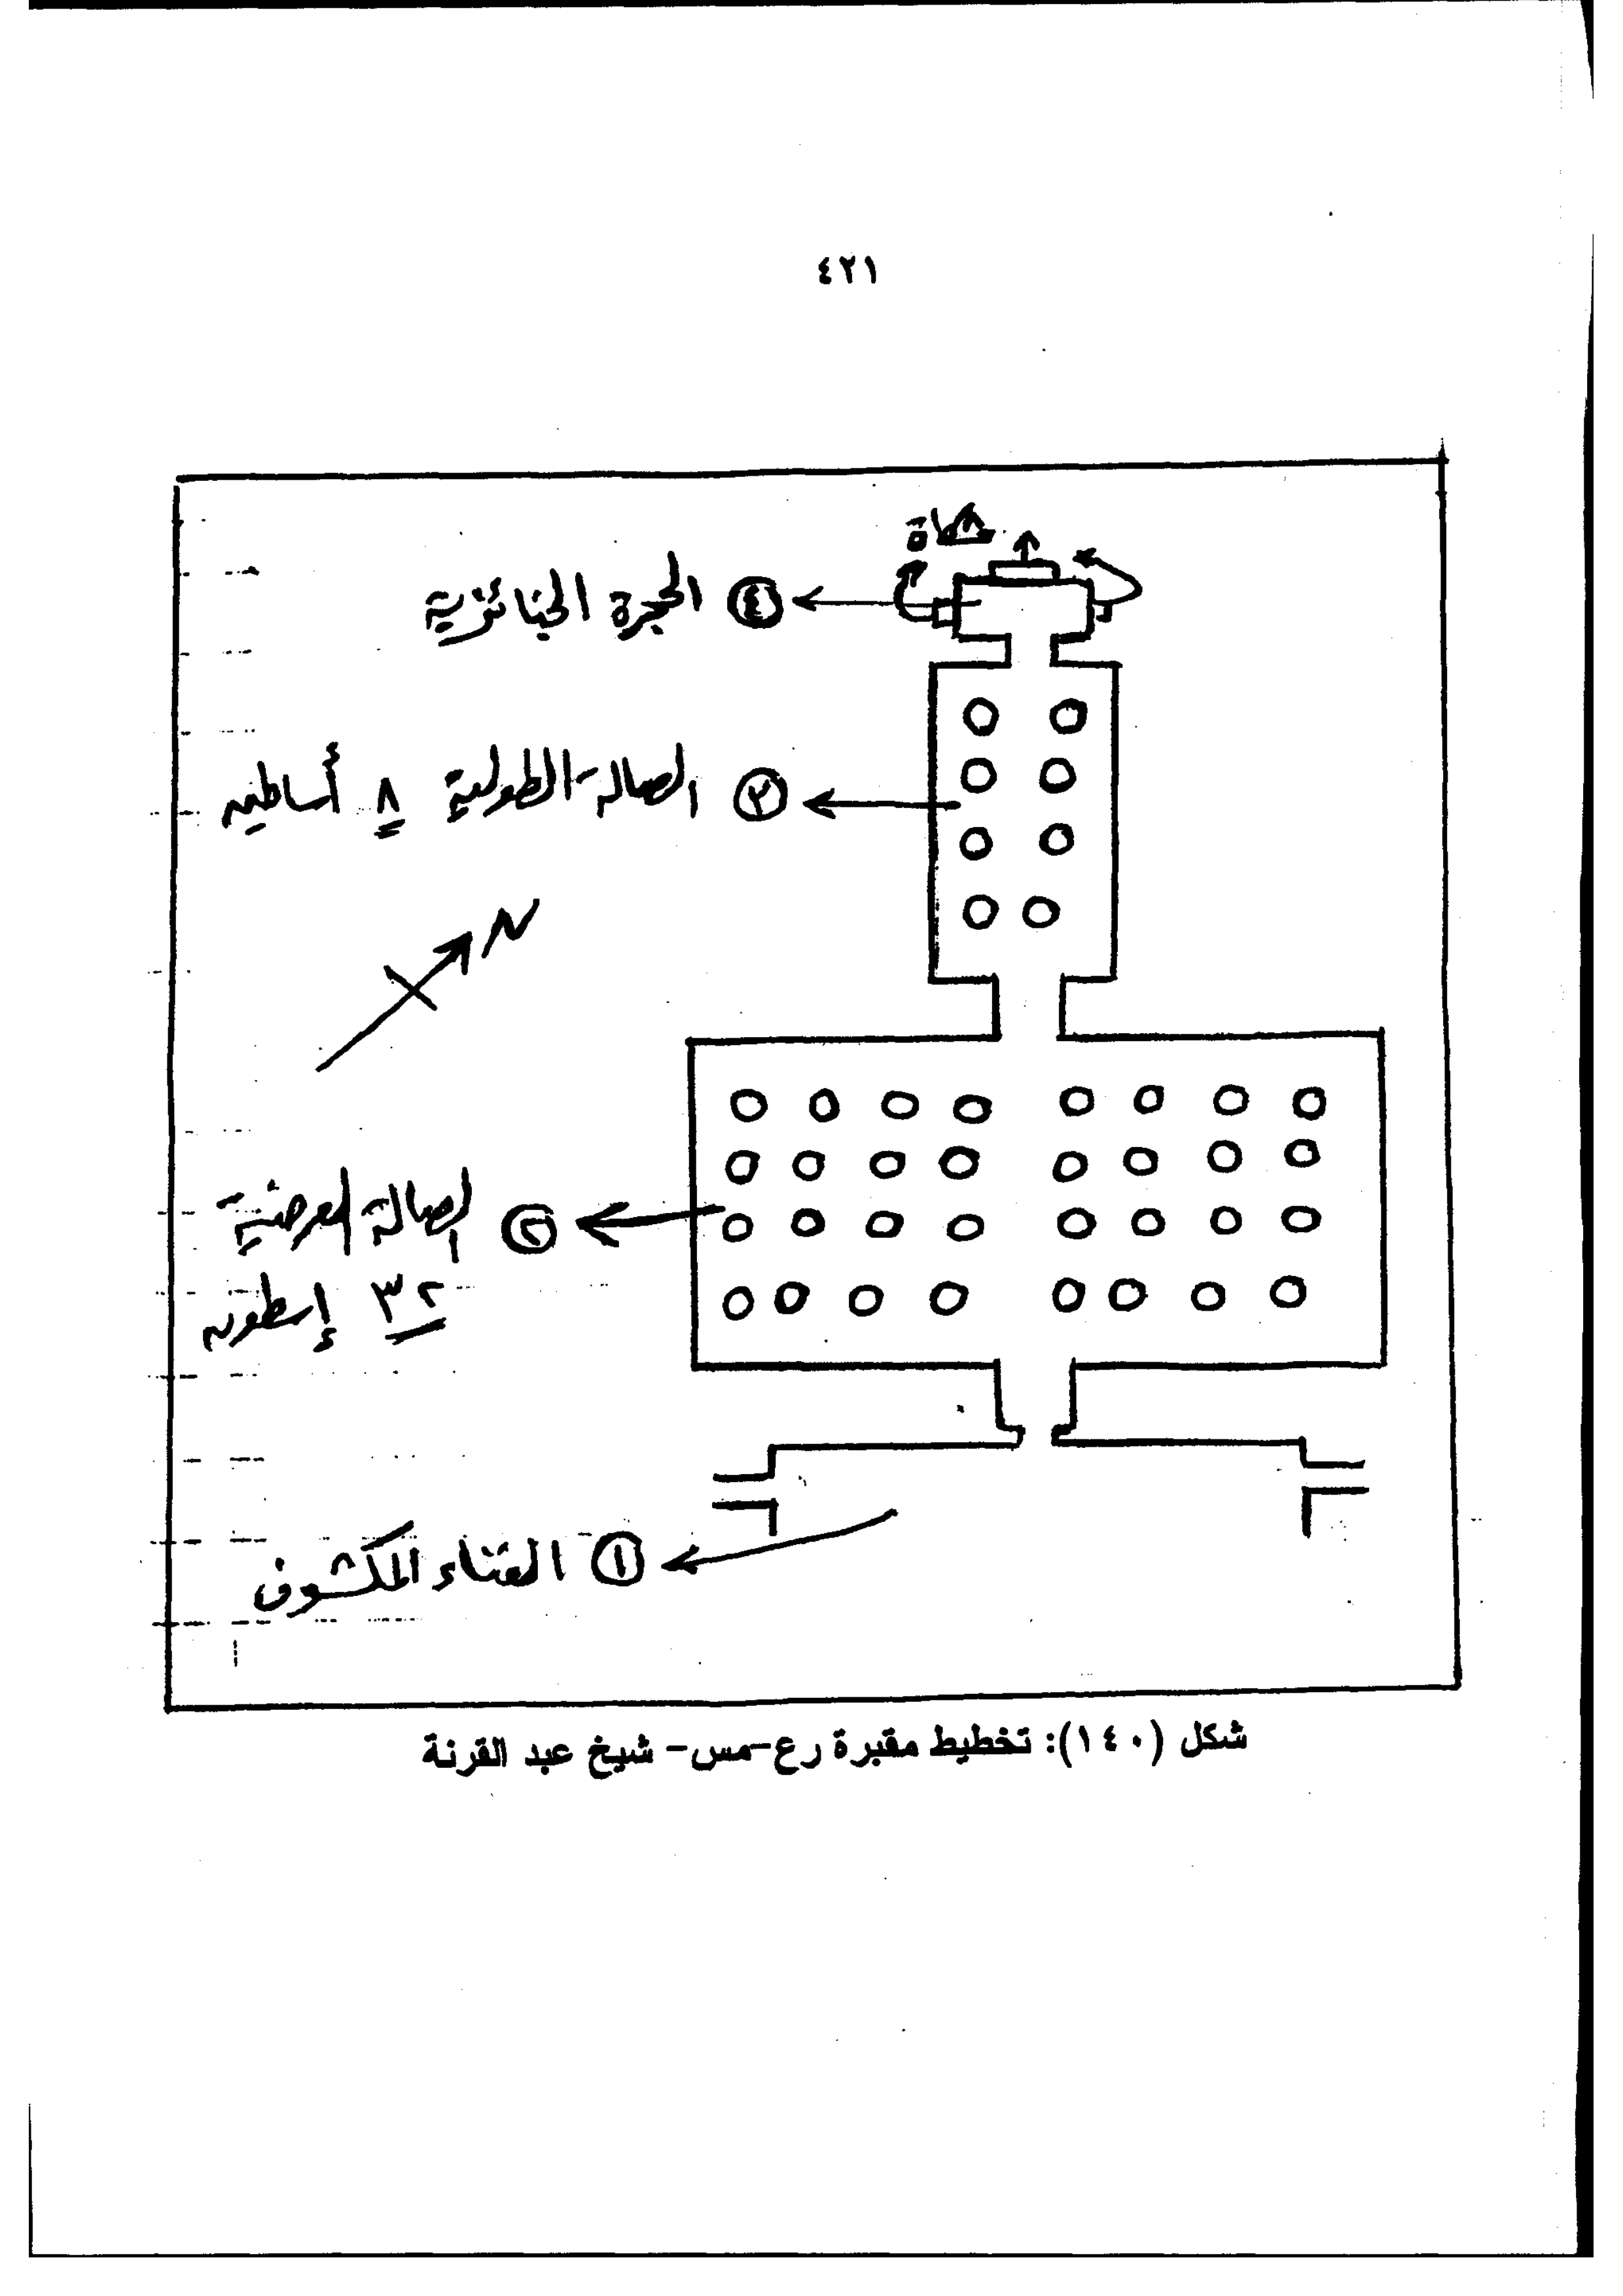 ٤٢١
مشكاة
④ الحجرة الجنائزية
③ الصالة الطولية ٨ أساطين
N
② الصالة العرضية
٣٢ إسطون
① الفناء المكشوف
شكل (١٤٠): تخطيط مقبرة رع-مس- شيخ عبد القرنة